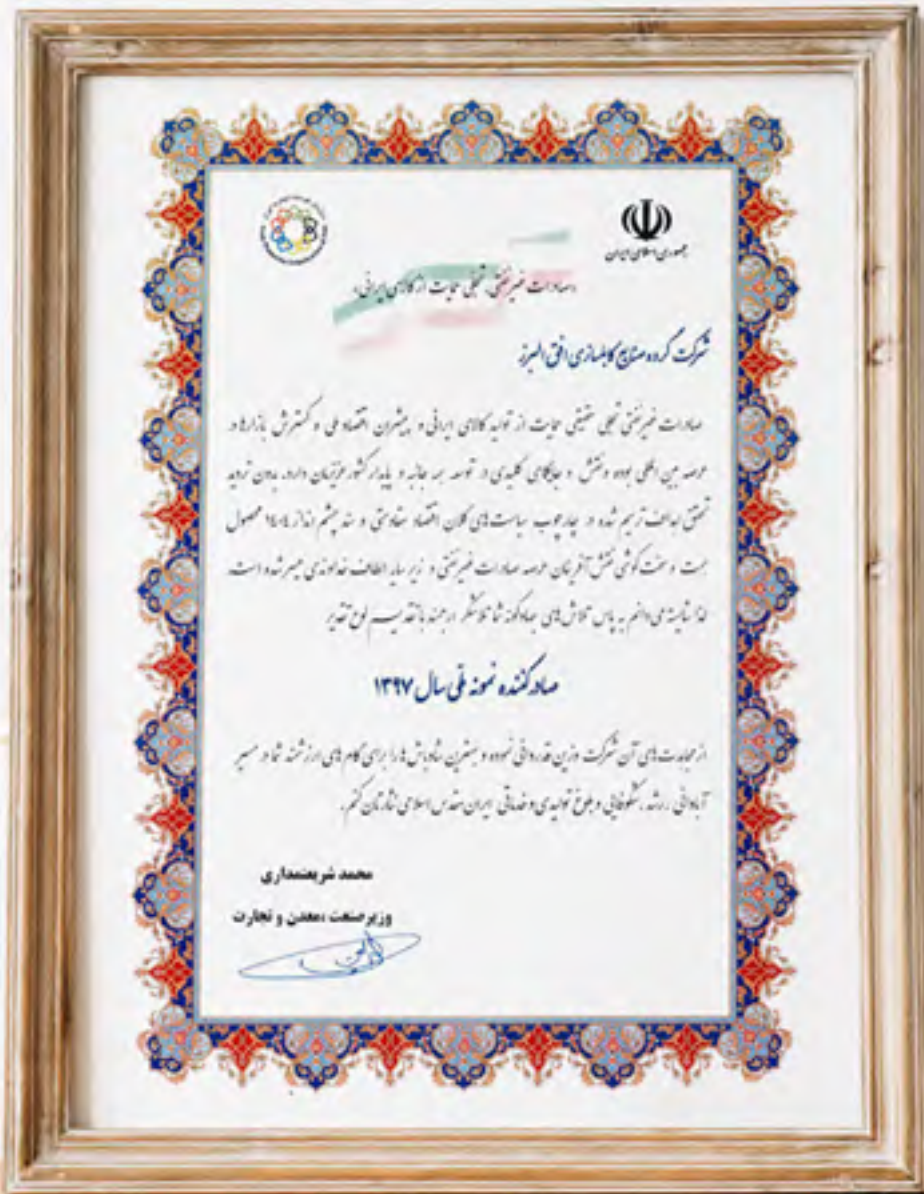 جمهوری اسلامی ایران
«صادرات غیرنفتی، تجلی حمایت از کالای ایرانی»
شرکت گروه صنایع کابلسازی افق البرز
صادرات غیرنفتی تجلی حقیقی حمایت از تولید کالای ایرانی و پیشران اقتصاد ملی و گسترش بازارها در
عرصه بین المللی بوده و نقش و جایگاه کلیدی در توسعه همه جانبه و پایدار کشور عزیزمان دارد. بدون تردید
تحقق اهداف ترسیم شده در چارچوب سیاست های کلان اقتصاد مقاومتی و سند چشم انداز ۱۴۰۴ محصول
همت و سخت کوشی نقش آفرینان عرصه صادرات غیرنفتی و زیر سایه الطاف خداوندی میسر شده است.
لذا شایسته می دانم به پاس تلاش های جهادگونه شما تلاشگر ارجمند با تقدیم لوح تقدیر
صادرکننده نمونه ملی سال ۱۳۹۷
از مجاهدت های آن شرکت وزین قدردانی نموده و بهترین شادباش ها را برای گام های ارزشمند شما در مسیر
آبادانی، رشد، شکوفایی و بلوغ تولیدی و خدماتی ایران مقدس اسلامی نثارتان کنم.
محمد شریعتمداری
وزیر صنعت، معدن و تجارت